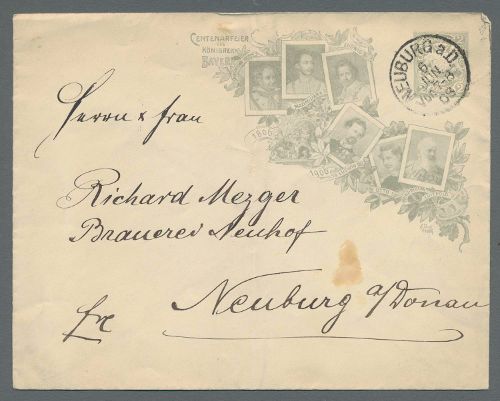 CENTENARFEIER
DES
KÖNIGREICHS
BAYERN
NEUBURG a/D.
1806
1906
Herrn & Frau
Richard Mezger
Brauerei Neuhof
Neuburg a/Donau
fre